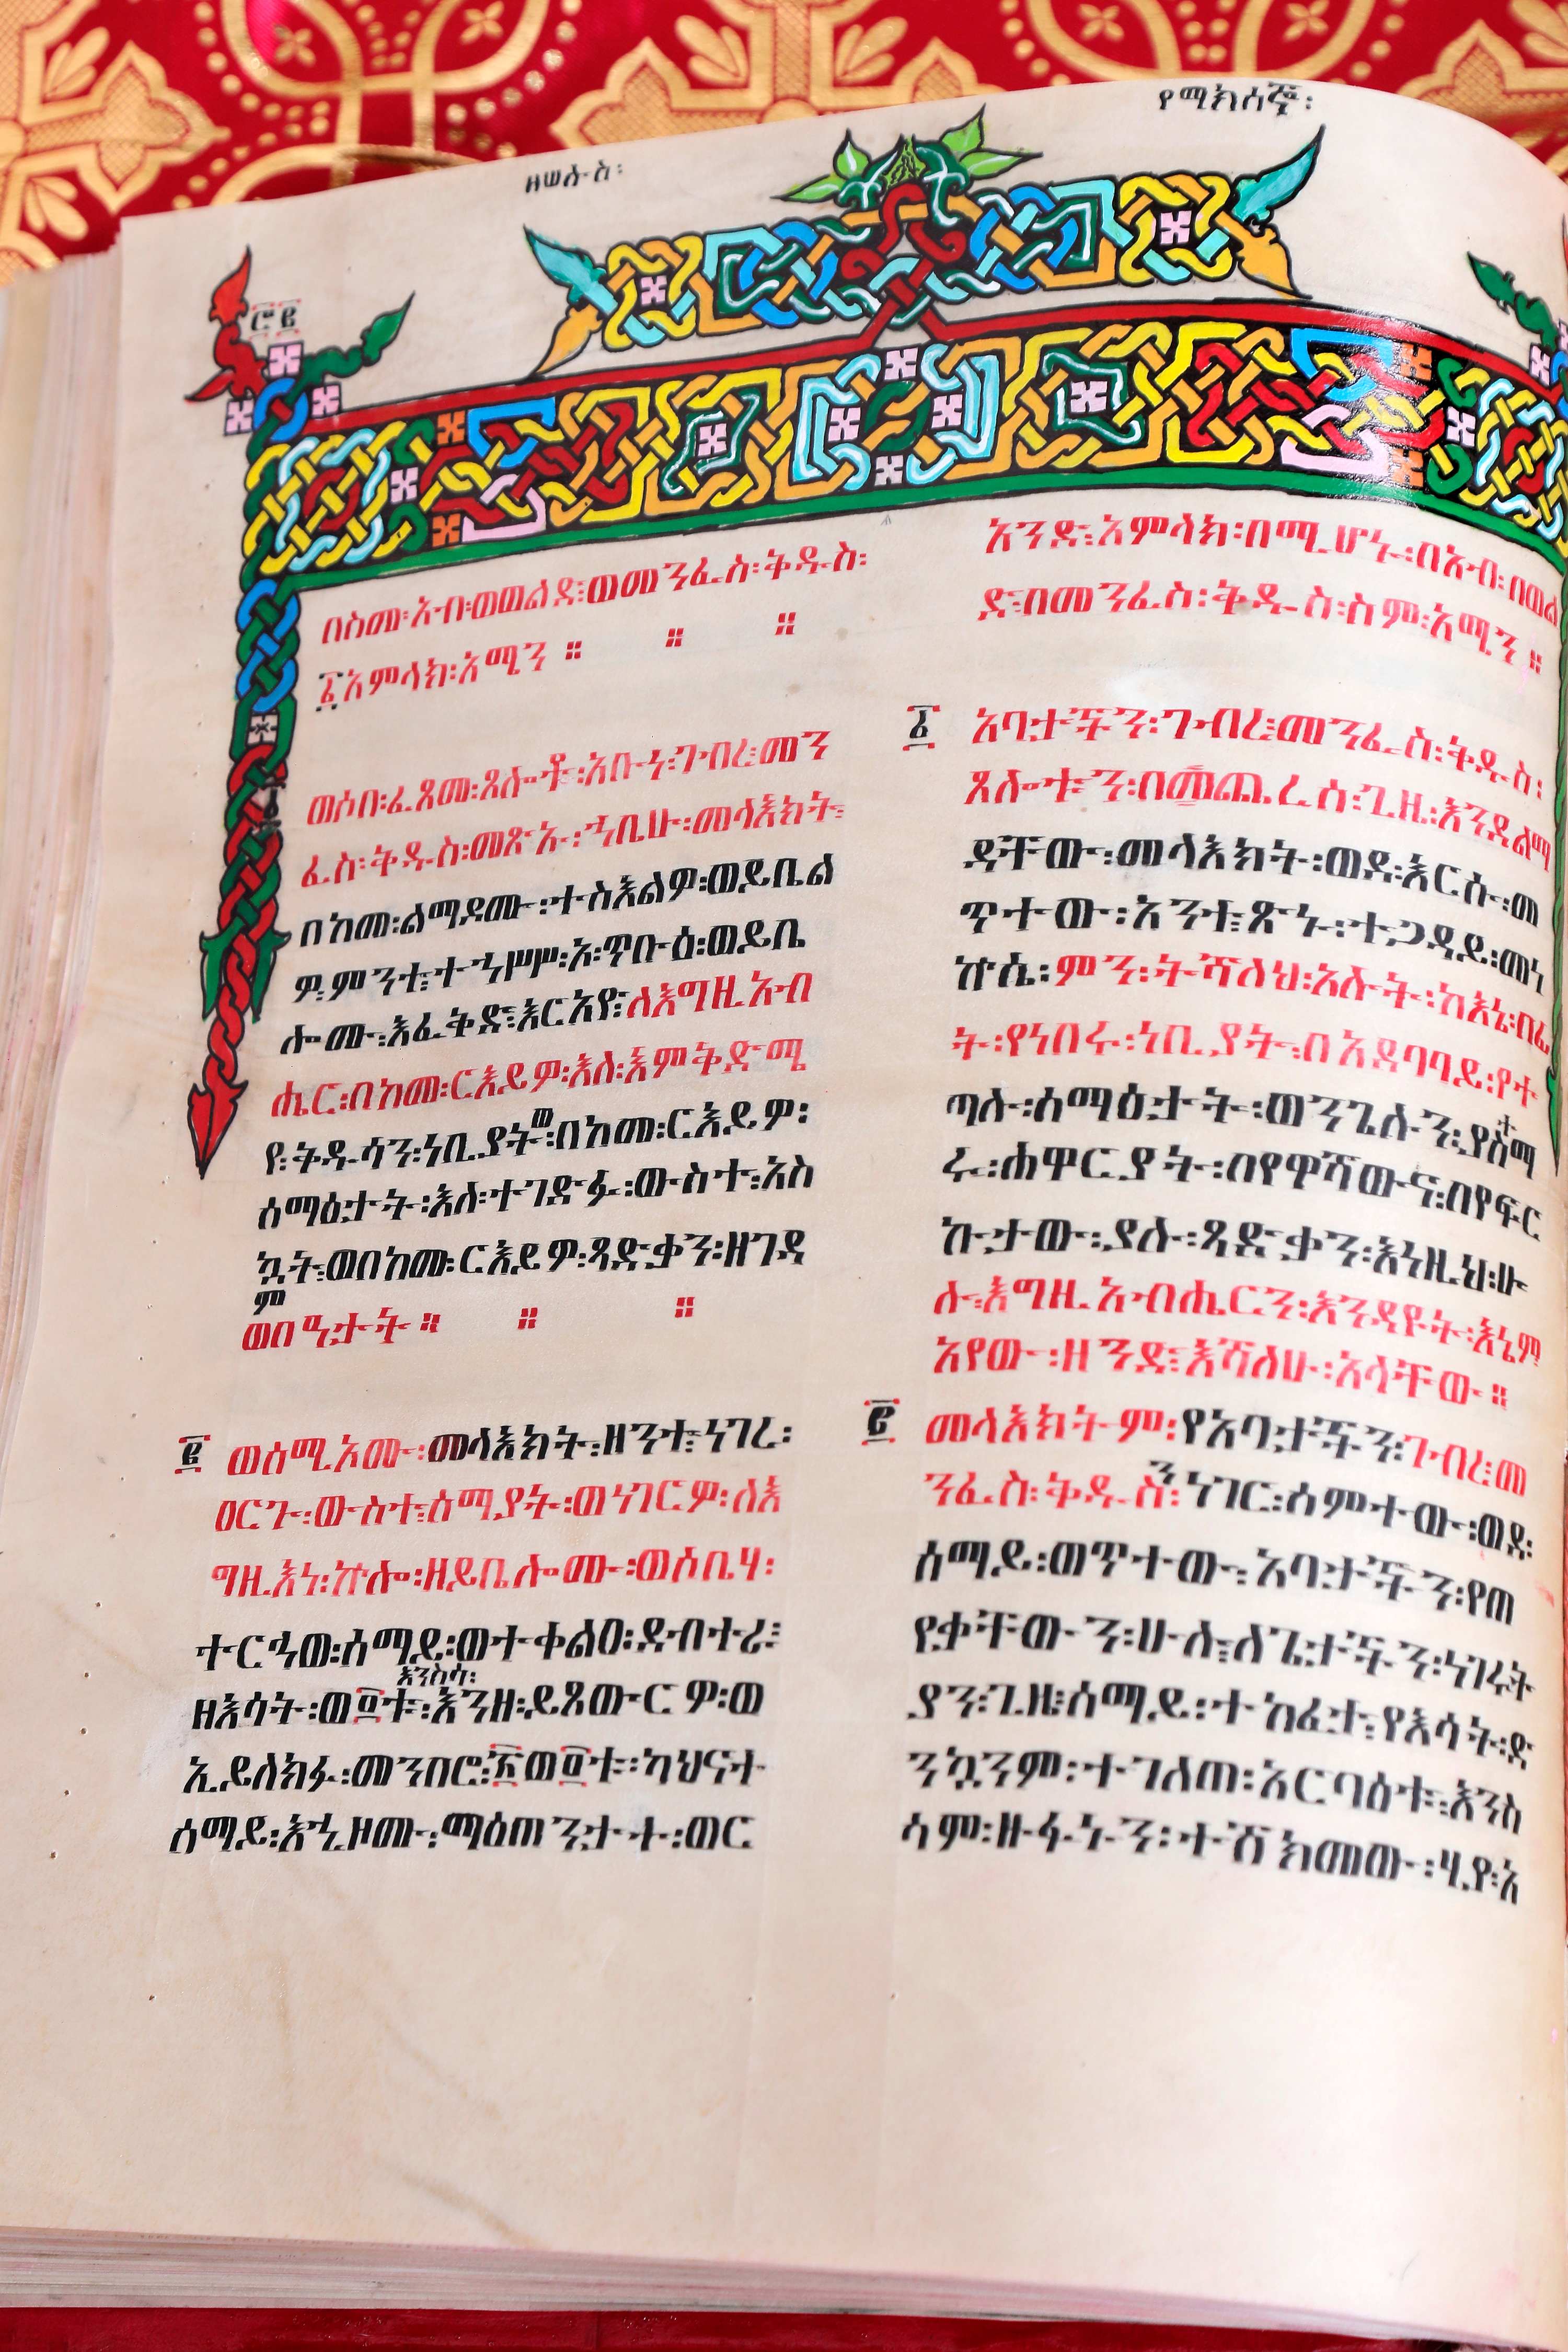 ዘሠሉስ፡
የማክሰኞ፡
፲፪
በስመ፡አብ፡ወወልድ፡ወመንፈስ፡ቅዱስ፡
፩አምላክ፡አሜን ። ። ።
፩ ወሶበ፡ፈጸመ፡ጸሎቶ፡አቡነ፡ገብረ፡መን
ፈስ፡ቅዱስ፡መጽኡ፡ኀቤሁ፡መላእክት፡
በከመ፡ልማዶሙ፡ተስእልዎ፡ወይቤል
ዎ፡ምንተ፡ተኀሥሥ፡አ፡ጥቡዕ፡ወይቤ
ሎሙ፡እፈቅድ፡እርአዮ፡ለእግዚአብ
ሔር፡በከመ፡ርእይዎ፡እለ፡እምቅድሜ
የ፡ቅዱሳን፡ነቢያት፡ወበከመ፡ርእይዎ፡
ሰማዕታት፡እለ፡ተገድፉ፡ውስተ፡አስ
ኳት፡ወበከመ፡ርእይዎ፡ጻድቃን፡ዘገዳ
ም
ወበዓታት ። ። ።
፪ ወሰሚኦሙ፡መላእክት፡ዘንተ፡ነገረ፡
ዐርጉ፡ውስተ፡ሰማያት፡ወነገርዎ፡ለእ
ግዚእነ፡ኵሎ፡ዘይቤሎሙ፡ወሶቤሃ፡
ተርኅወ፡ሰማይ፡ወተቀልዐ፡ደብተራ፡
እንስሳ፡
ዘእሳት፡ወ፬ቱ፡እንዘ፡ይጸውርዎ፡ወ
ኢይለክፉ፡መንበሮ፡፳ወ፬ቱ፡ካህናተ
ሰማይ፡እኂዞሙ፡ማዕጠንታተ፡ወር
አንድ፡አምላክ፡በሚሆኑ፡በአብ፡በወል
ድ፡በመንፈስ፡ቅዱስ፡ስም፡አሜን ።
፩ አባታችን፡ገብረ፡መንፈስ፡ቅዱስ፡
ጸሎቱን፡በመጨረሰ፡ጊዜ፡እንደልማ
ዳቸው፡መላእክት፡ወደ፡እርሱ፡መ
ጥተው፡አንተ፡ጽኑ፡ተጋዳይ፡መነ
ኵሴ፡ምን፡ትሻለህ፡አሉት፡ከእኔ፡በፊ
ት፡የነበሩ፡ነቢያት፡በአደባባይ፡የተ
ጣሉ፡ሰማዕታት፡ወንጌሉን፡ያስተማ
ሩ፡ሐዋርያት፡በየዋሻውና፡በየፍር
ኩታው፡ያሉ፡ጻድቃን፡እነዚህ፡ሁ
ሉ፡እግዚአብሔርን፡እንዳዩት፡እኔም
አየው፡ዘንድ፡እሻለሁ፡አላቸው ።
፪ መላእክትም፡የአባታችን፡ገብረ፡መ
ንፈስ፡ቅዱስን፡ነገር፡ሰምተው፡ወደ፡
ሰማይ፡ወጥተው፡አባታችን፡የጠ
የቃቸውን፡ሁሉ፡ለጌታችን፡ነገሩት
ያን፡ጊዜ፡ሰማይ፡ተከፈተ፡የእሳት፡ድ
ንኳንም፡ተገለጠ፡አርባዕቱ፡እንስ
ሳም፡ዙፋኑን፡ተሸክመው፡ሃያ፡አ